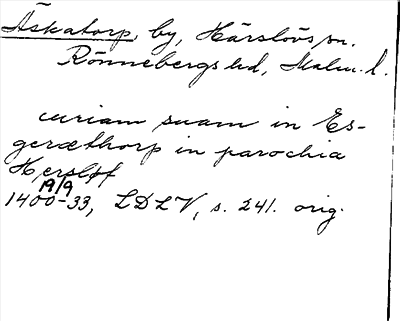 Äskatorp, by, Härslövs sn.
Rönnebergs hd, Malm. l.
curiam suam in Es-
geræthorp in parochia
Hersløf
19/9
1400-33, LDLV, s. 241. orig.